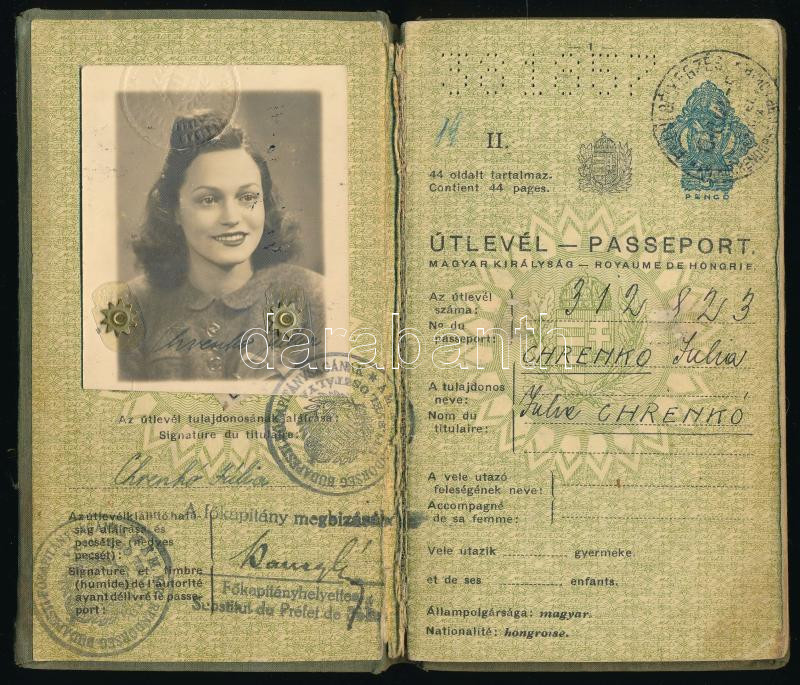 Chrenkó Júlia
Az útlevél tulajdonosának aláírása:
Signature du titulaire:
Chrenkó Júlia
A főkapitány megbízásából
Az útlevélkiállító ható-
ság aláírása és
pecsétje (nedves
pecsét):
Signature et timbre
(humide) de l'autorité
ayant délivré le passe-
port:
Főkapitányhelyettes
Substitut du Préfet de
darabanth
14
II.
44 oldalt tartalmaz.
Contient 44 pages.
PENGŐ
ÚTLEVÉL — PASSEPORT.
MAGYAR KIRÁLYSÁG — ROYAUME DE HONGRIE.
Az útlevél
száma:
No du
passeport:
312823
CHRENKÓ Júlia
A tulajdonos
neve:
Nom du
titulaire:
Julie CHRENKÓ
A vele utazó
feleségének neve:
Accompagné
de sa femme:
Vele utazik gyermeke.
et de ses enfants.
Állampolgársága: magyar.
Nationalité: hongroise.